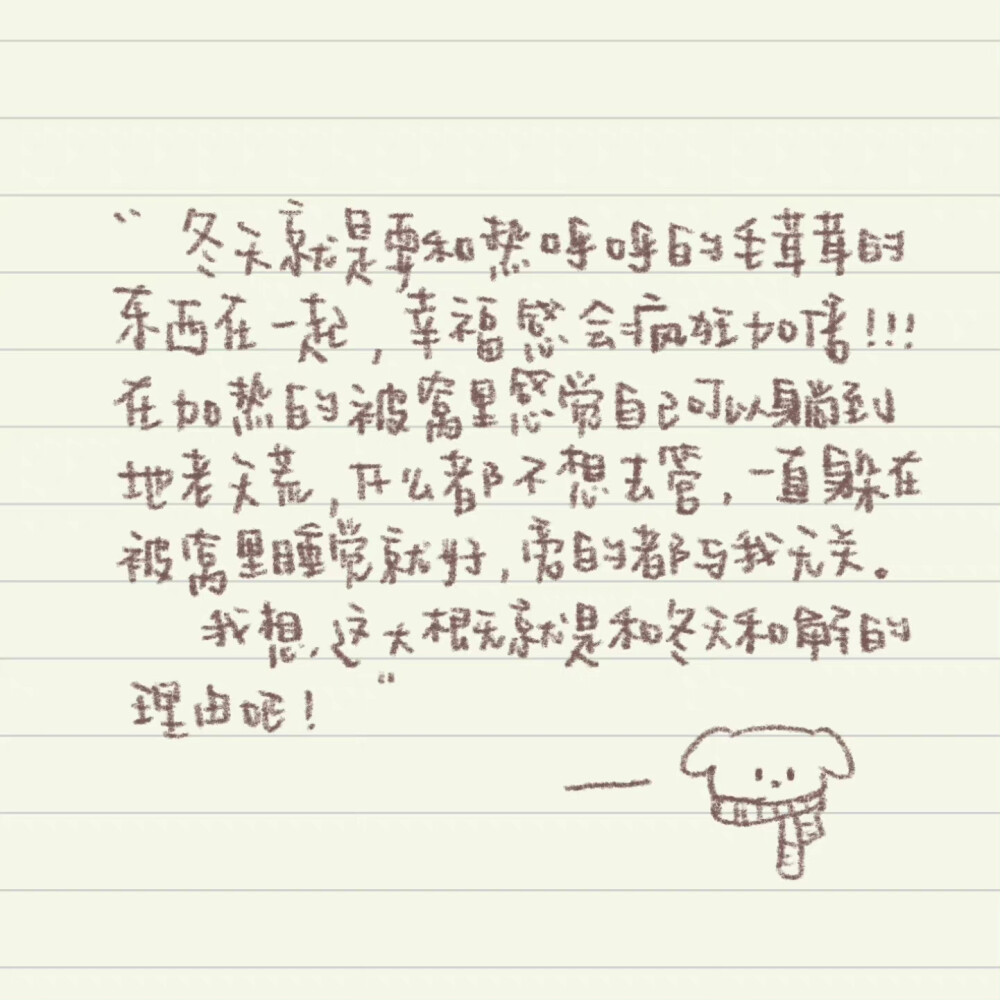 “冬天就是要和热呼呼的毛茸茸的
东西在一起,幸福感会疯狂加倍!!!
在加热的被窝里感觉自己可以躺到
地老天荒,什么都不想去管,一直躲在
被窝里睡觉就好,旁的都与我无关。
我想,这大概就是和冬天和解的
理由吧!”